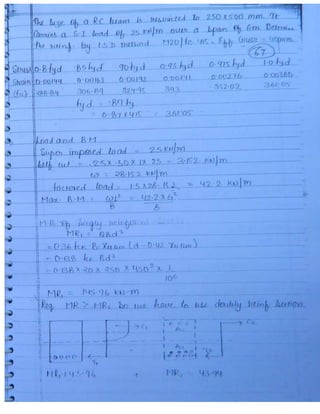 The size of a RC beam is restricted to 250x500 mm. It
carries a S.I load of 25 KN/m over a span of 6m. Determine
the reinf. by L.S.D method M20 | fe 415. Eff cover = 50mm
67
Stress 0.8 fyd 0.85 fyd 0.9 fyd 0.95 fyd 0.975 fyd 1.0 fyd
Strain 0.00144 0.00163 0.00192 0.00241 0.00276 0.00380
288.84 306.89 324.95 343 352.02 361.05
fyd = .87 fy
= 0.87 x 415 = 361.05
Load and B.M
Super imposed load = 25 KN/m
Self wt = .25 x .50 x 1 x 25 = 3.152 KN/m
w = 28.152 KN/m
factored load = 1.5 x 28.152 = 42.2 KN/m
Max. B.M = 
M.R. singly reinforced
MR1 = QBd²
= 0.36 fck B. Xumax (d - 0.42 Xumax)
= 0.138 fck Bd²
= 0.138 x 20 x 250 x 450² x 1/10⁶
MR1 = 145.96 KN-m
Req MR > MR1 So we have to use doubly reinf. Section.
MR1 = 145.96 + MR2 = 43.94